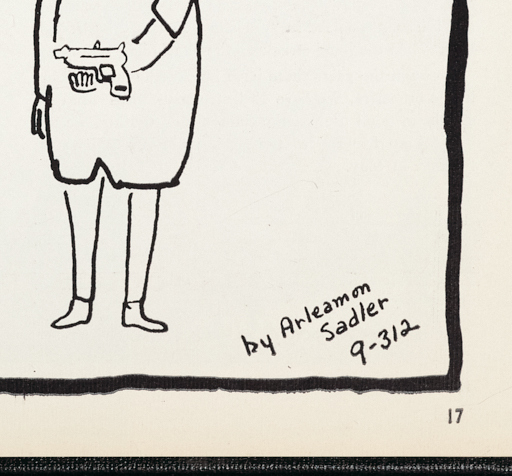 by Arleamon
Sadler
9-312
17